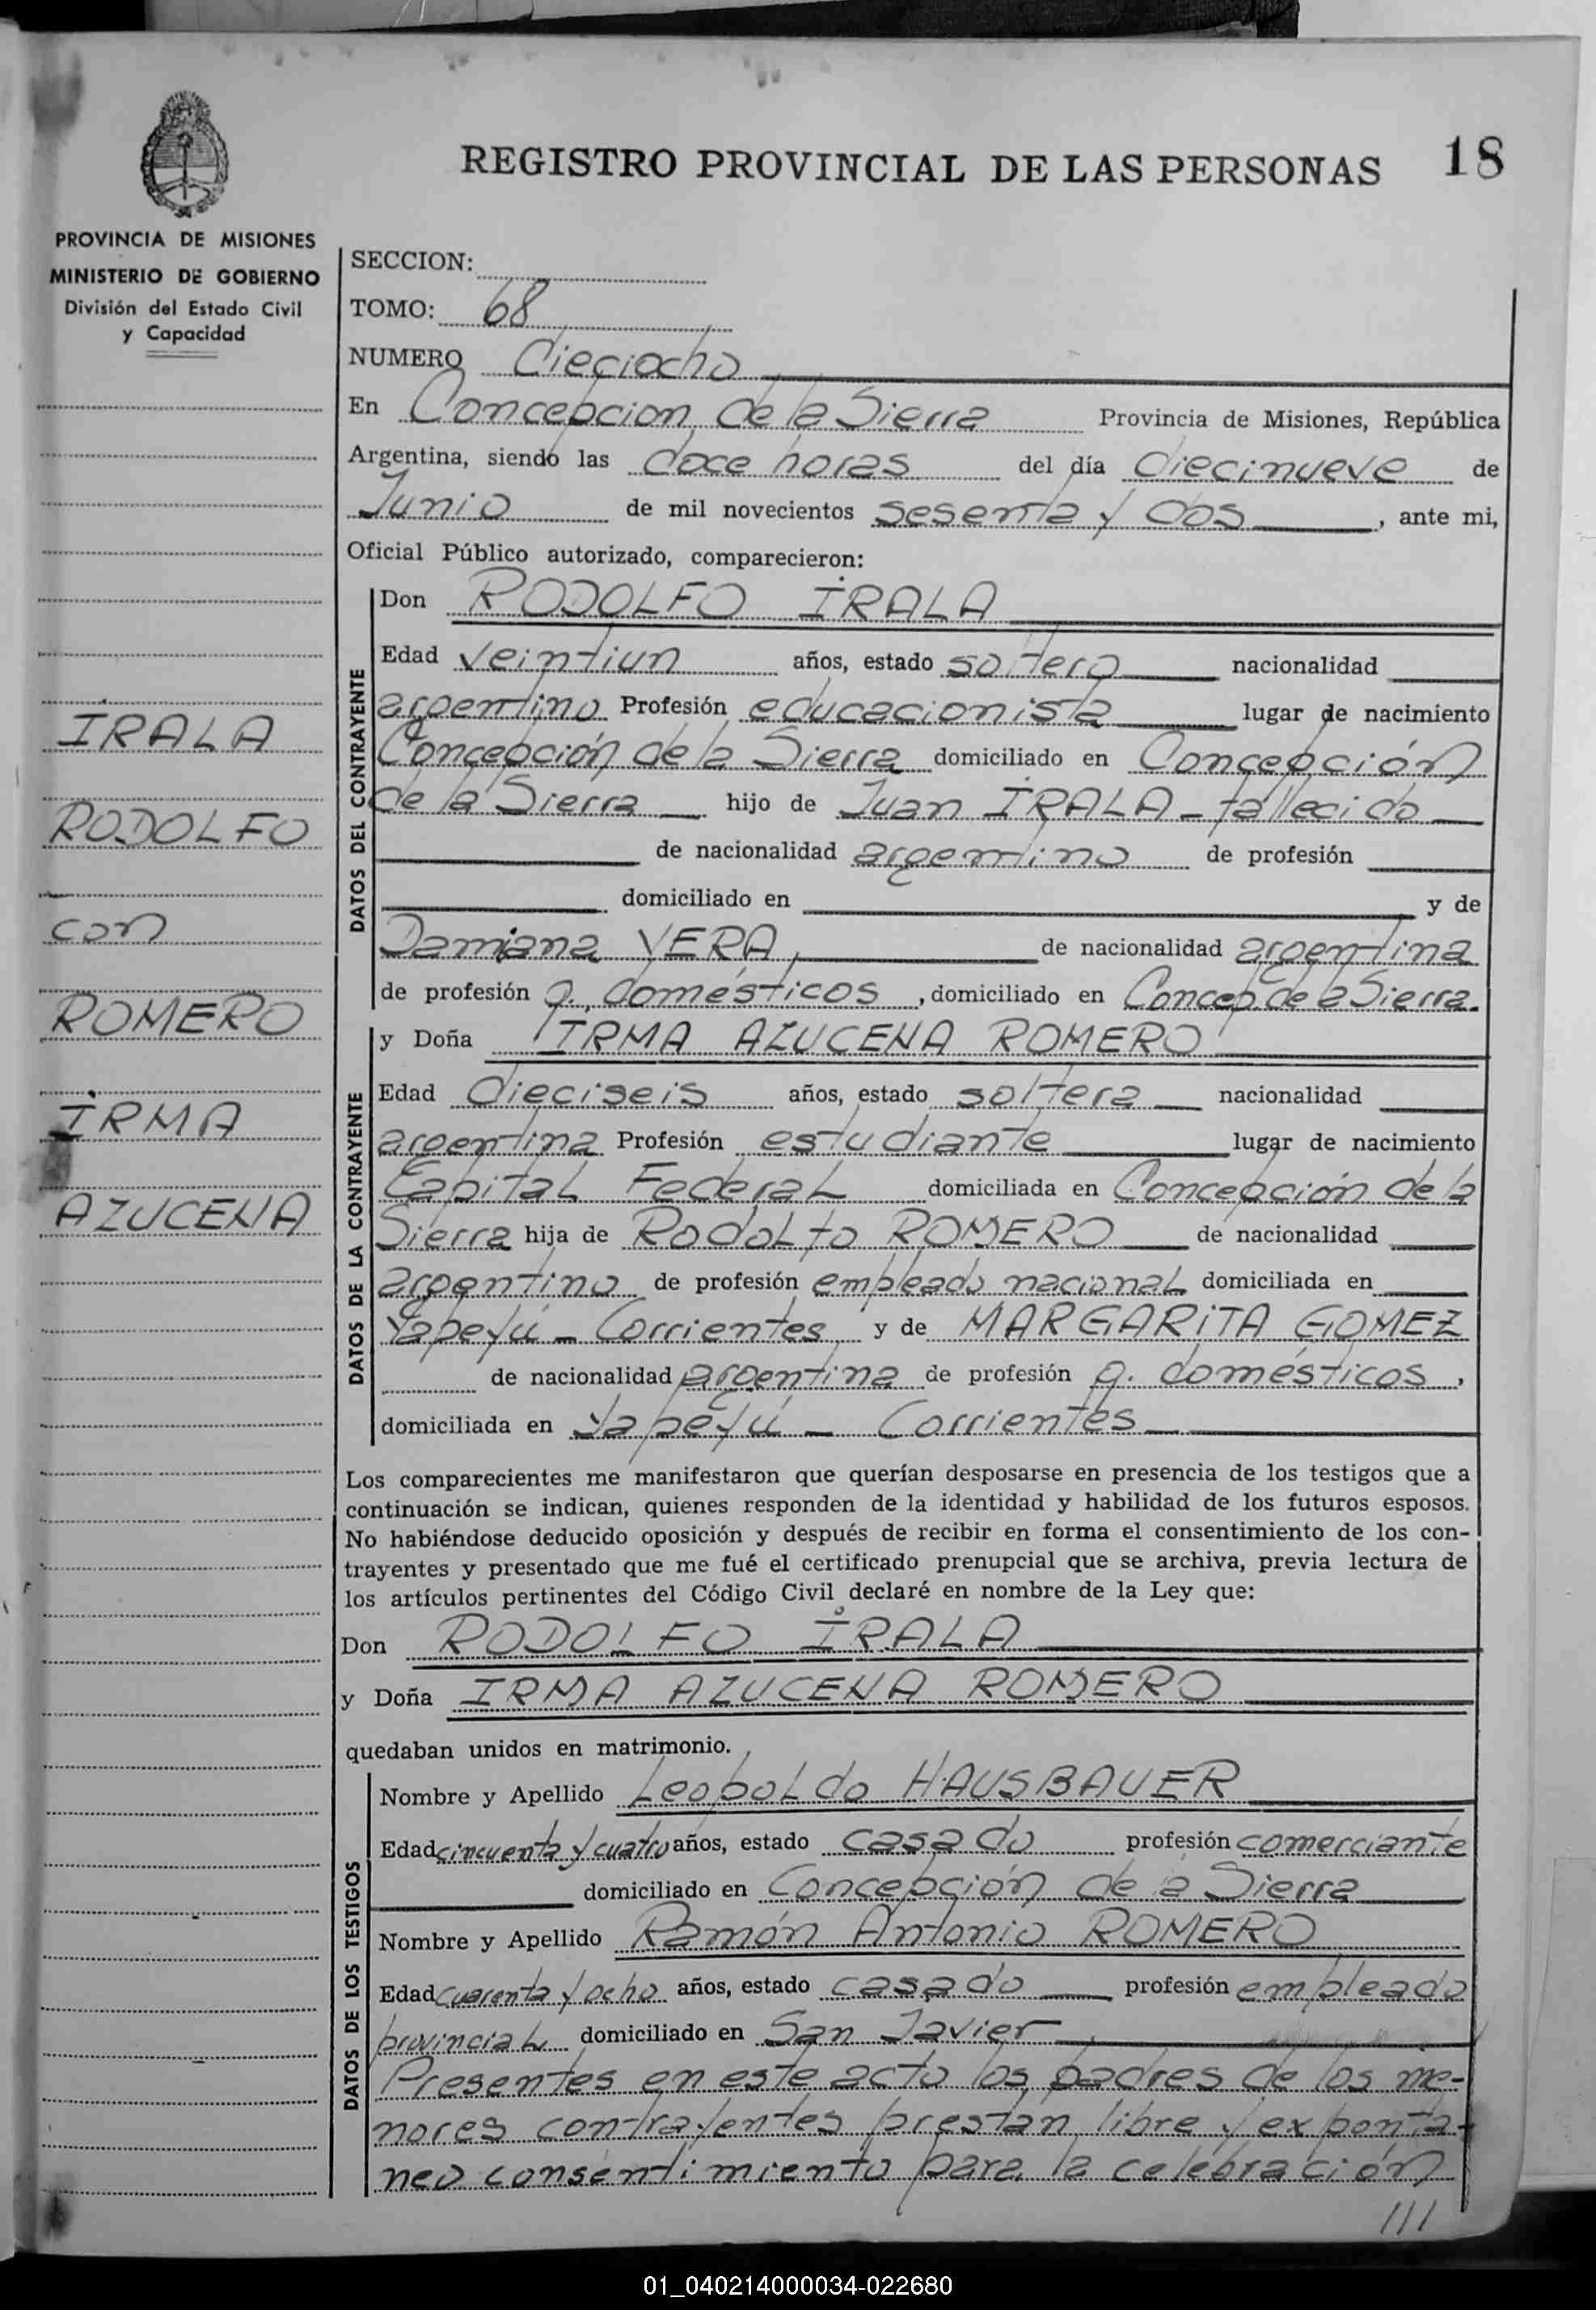 REGISTRO PROVINCIAL DE LAS PERSONAS 18
PROVINCIA DE MISIONES
MINISTERIO DE GOBIERNO
División del Estado Civil
y Capacidad
IRALA
RODOLFO
con
ROMERO
IRMA
AZUCENA
SECCION:
TOMO: 68
NUMERO Dieciocho
En Concepcion de la Sierra Provincia de Misiones, República
Argentina, siendo las doce horas del día diecinueve de
Junio de mil novecientos sesenta y dos, ante mi,
Oficial Público autorizado, comparecieron:
DATOS DEL CONTRAYENTE
Don RODOLFO IRALA
Edad veintiun años, estado soltero nacionalidad
argentino Profesión educacionista lugar de nacimiento
Concepción de la Sierra domiciliado en Concepción
de la Sierra hijo de Juan IRALA - fallecido
de nacionalidad argentino de profesión
domiciliado en y de
Damiana VERA, de nacionalidad argentina
de profesión q. domésticos, domiciliado en Concep. de la Sierra.
DATOS DE LA CONTRAYENTE
y Doña IRMA AZUCENA ROMERO
Edad dieciseis años, estado soltera nacionalidad
argentina Profesión estudiante lugar de nacimiento
Capital Federal domiciliada en Concepción de la
Sierra hija de Rodolfo ROMERO de nacionalidad
argentino de profesión empleado nacional domiciliada en
Yapeyú - Corrientes y de MARGARITA GOMEZ
de nacionalidad argentina de profesión q. domésticos,
domiciliada en Yapeyú - Corrientes
Los comparecientes me manifestaron que querían desposarse en presencia de los testigos que a
continuación se indican, quienes responden de la identidad y habilidad de los futuros esposos.
No habiéndose deducido oposición y después de recibir en forma el consentimiento de los con-
trayentes y presentado que me fué el certificado prenupcial que se archiva, previa lectura de
los artículos pertinentes del Código Civil declaré en nombre de la Ley que:
Don RODOLFO IRALA
y Doña IRMA AZUCENA ROMERO
quedaban unidos en matrimonio.
DATOS DE LOS TESTIGOS
Nombre y Apellido Leopoldo HAUSBAUER
Edad cincuenta y cuatro años, estado casado profesión comerciante
domiciliado en Concepción de la Sierra
Nombre y Apellido Ramón Antonio ROMERO
Edad cuarenta y ocho años, estado casado profesión empleado
provincial domiciliado en San Javier
Presentes en este acto los padres de los me-
nores contrayentes prestan libre y exponta-
neo consentimiento para la celebración
///
01_040214000034-022680